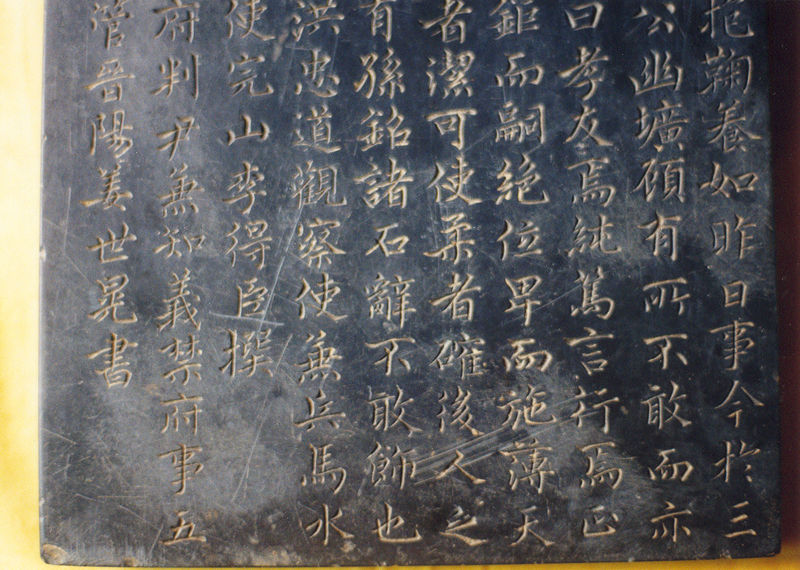 抱鞠養如昨日事今於三
公幽壙碩有所不敢而亦
曰孝友焉純篤言行焉正
鉅而嗣絶位卑而施薄天
者潔可使柔者確後人之
有孫銘諸石辭不敢飾也
洪忠道觀察使兼兵馬水
使完山李得臣撰
府判尹兼知義禁府事五
管晉陽姜世晃書